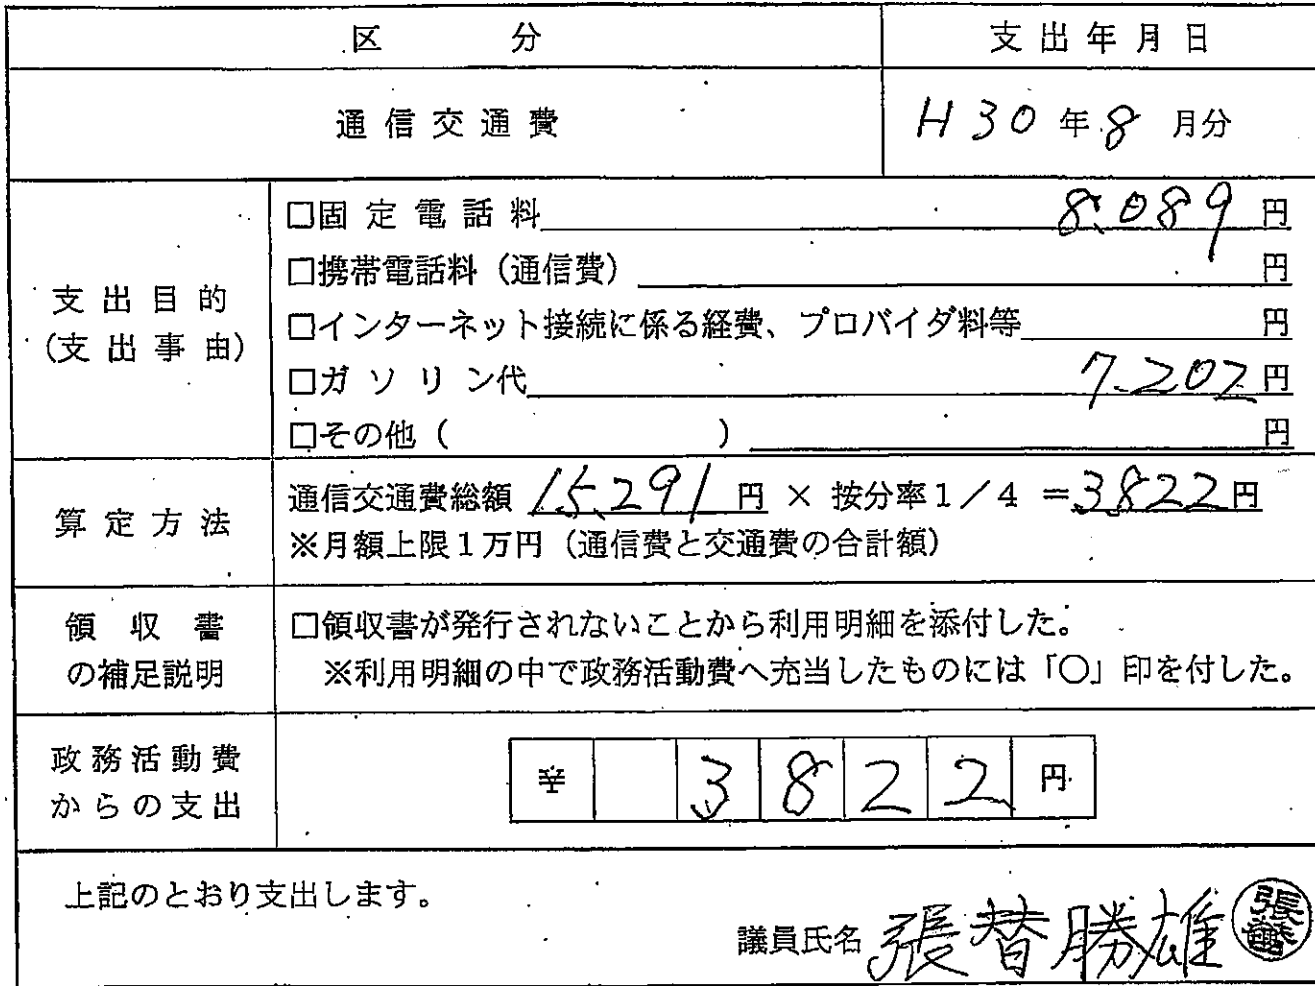 区 分 支出年月日
通信交通費 H30年8月分
支出目的
(支出事由)
□固定電話料 8,089円
□携帯電話料（通信費） 円
□インターネット接続に係る経費、プロバイダ料等 円
□ガソリン代 7,202円
□その他（ ） 円
算定方法
通信交通費総額 15,291円 × 按分率1／4 ＝3,822円
※月額上限1万円（通信費と交通費の合計額）
領収書
の補足説明
□領収書が発行されないことから利用明細を添付した。
※利用明細の中で政務活動費へ充当したものには「○」印を付した。
政務活動費
からの支出
¥ 3822円
上記のとおり支出します。
議員氏名 張替勝雄 張替